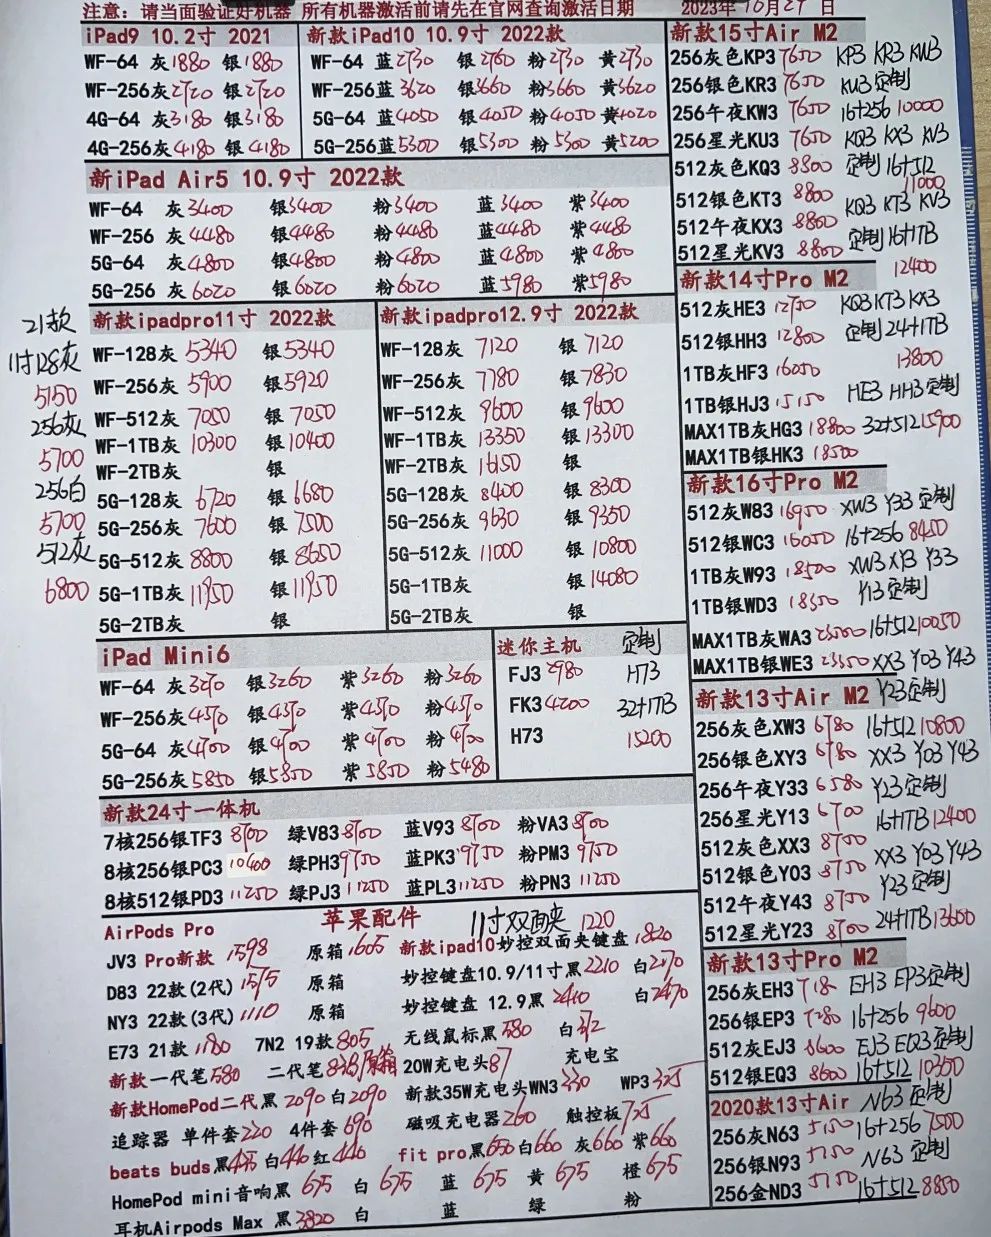 注意：请当面验证好机器 所有机器激活前请先在官网查询激活日期
2023年10月27日
iPad9 10.2寸 2021
WF-64 灰1880 银1880
WF-256灰2720 银2720
4G-64 灰3180 银3180
4G-256灰4180 银4180
新款iPad10 10.9寸 2022款
WF-64 蓝2730 银2760 粉2730 黄2730
WF-256蓝3620 银3660 粉3660 黄3620
5G-64 蓝4050 银4050 粉4050 黄4020
5G-256蓝5300 银5300 粉5300 黄5200
新iPad Air5 10.9寸 2022款
WF-64 灰3400 银3400 粉3400 蓝3400 紫3400
WF-256 灰4480 银4480 粉4480 蓝4480 紫4480
5G-64 灰4800 银4800 粉4800 蓝4800 紫4800
5G-256 灰6020 银6020 粉6020 蓝5980 紫5980
21款
11寸128灰
5150
256灰
5700
256白
5700
512灰
6800
新款ipadpro11寸 2022款
WF-128灰 5340 银5340
WF-256灰 5900 银5920
WF-512灰 7050 银7050
WF-1TB灰 10300 银10400
WF-2TB灰 银
5G-128灰 6720 银6680
5G-256灰 7600 银7500
5G-512灰 8800 银8650
5G-1TB灰 11950 银11950
5G-2TB灰 银
新款ipadpro12.9寸 2022款
WF-128灰 7120 银7120
WF-256灰 7780 银7830
WF-512灰 9600 银9600
WF-1TB灰 13350 银13300
WF-2TB灰 16150 银
5G-128灰 8400 银8300
5G-256灰 9630 银9350
5G-512灰 11000 银10800
5G-1TB灰 银14080
5G-2TB灰 银
iPad Mini6
WF-64 灰3270 银3260 紫3260 粉3260
WF-256灰4370 银4370 紫4370 粉4370
5G-64 灰4700 银4700 紫4700 粉4700
5G-256灰5850 银5850 紫5850 粉5480
迷你主机 定制
FJ3 2980 H73
FK3 4200 32+1TB
H73 15200
新款24寸一体机
7核256银TF3 8700 绿V83 8700 蓝V93 8700 粉VA3 8700
8核256银PC3 10400 绿PH3 9750 蓝PK3 9750 粉PM3 9750
8核512银PD3 11250 绿PJ3 11250 蓝PL3 11250 粉PN3 11250
苹果配件 11寸双面夹 1220
AirPods Pro
JV3 Pro新款 1598 原箱1605
D83 22款(2代) 1575 原箱
NY3 22款(3代) 1110 原箱
E73 21款 1180 7N2 19款 805
新款一代笔580 二代笔838/原箱
新款HomePod二代黑 2090 白2090
追踪器 单件套220 4件套690
beats buds黑 白440 红440
HomePod mini音响黑 675 白 675 蓝 675 黄 675 橙 675
耳机Airpods Max 黑3820 白 蓝 绿 粉
新款ipad10妙控双面夹键盘1820
妙控键盘10.9/11寸黑2210 白2270
妙控键盘 12.9黑2410 白2470
无线鼠标黑580 白
20W充电头87 充电宝
新款35W充电头WN3 330 WP3 325
磁吸充电器260 触控板725
fit pro黑650 白660 灰660 紫660
新款15寸Air M2
256灰色KP3 7650 KP3 KR3 KW3
256银色KR3 7650 KU3定制
256午夜KW3 7650 16+256 10000
256星光KU3 7650 KQ3 KX3 KV3
512灰色KQ3 8800 定制 16+512
11000
512银色KT3 8800 KQ3 KT3 KV3
512午夜KX3 8800 定制 16+1TB
512星光KV3 8800
12400
新款14寸Pro M2
512灰HE3 12700 KQ3 KT3 KX3
512银HH3 12800 定制24+1TB
1TB灰HF3 16050 13800
1TB银HJ3 15150 HE3 HH3定制
MAX1TB灰HG3 18800 32+512 15900
MAX1TB银HK3 18500
新款16寸Pro M2
512灰W83 16950 XW3 Y33 定制
512银WC3 16050 16+256 8450
1TB灰W93 18500 XW3 XY3 Y33
1TB银WD3 18350 Y13定制
MAX1TB灰WA3 23000 16+512 10050
MAX1TB银WE3 23350 XX3 Y03 Y43
新款13寸Air M2 Y23定制
256灰色XW3 6780 16+512 10800
256银色XY3 6780 XX3 Y03 Y43
256午夜Y33 6580 Y23定制
256星光Y13 6700 16+1TB 12400
512灰色XX3 8700
512银色Y03 8750 XX3 Y03 Y43
512午夜Y43 8750 Y23定制
512星光Y23 8700 24+1TB 13600
新款13寸Pro M2
256灰EH3 EH3 EP3定制
256银EP3 7280 16+256 9600
512灰EJ3 8600 EJ3 EQ3定制
512银EQ3 8600 16+512 10350
2020款13寸Air N63定制
256灰N63 5150 16+256 7500
256银N93 5750 N63 定制
256金ND3 5150 16+512 8850